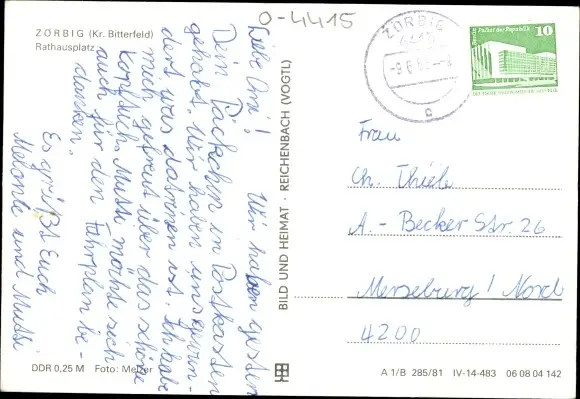 ZÖRBIG (Kr. Bitterfeld)
Rathausplatz
0-4415
Liebe Omi! Wir haben gestern
Dein Päckchen im Postkasten
gehabt. Wir haben uns
dert was da ist. Ich habe
mich gefreut über das schöne
Kopftuch. Mutti möchte sich
auch für den Fahrplan be-
danken.
Es grüßt Euch
und Mutti
DDR 0,25 M Foto: Melzer
BILD UND HEIMAT · REICHENBACH (VOGTL)
ZÖRBIG
4415
c
Berlin Palast der Republik
10
DEUTSCHE DEMOKRATISCHE REPUBLIK
Frau
Ch. Thiele
A.- Becker Str. 26
Merseburg / Nord
4200
A 1/B 285/81 IV-14-483 06 08 04 142